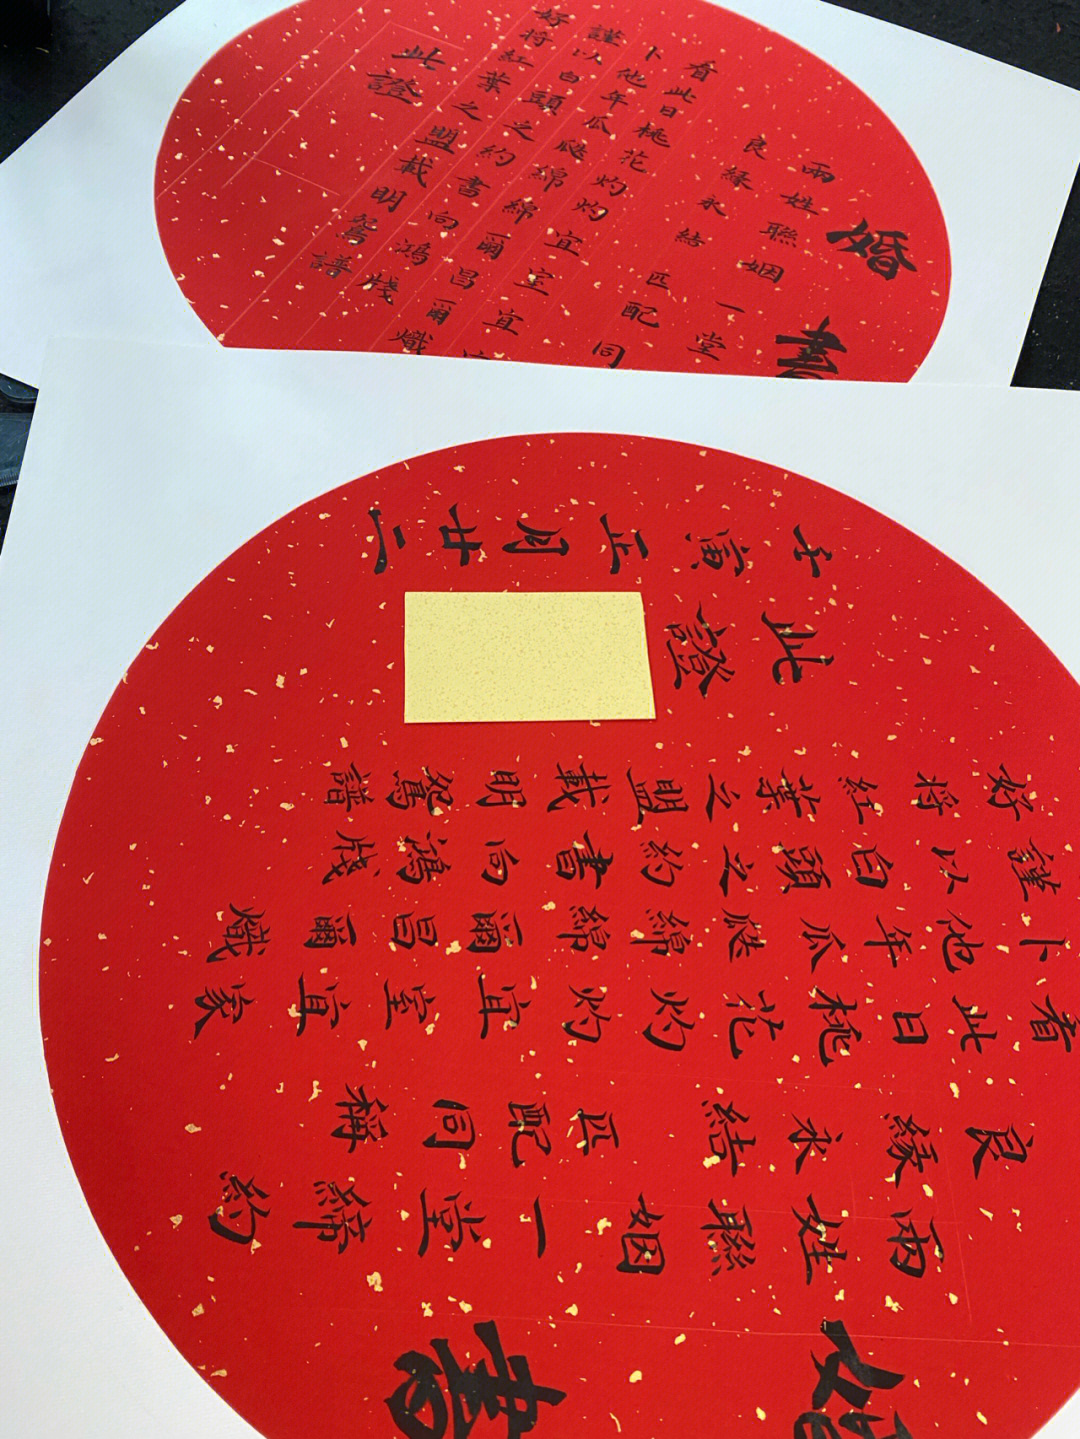 婚書
兩姓聯姻 一堂
良緣永結 匹配同
看此日桃花灼灼宜室宜
卜他年瓜瓞綿綿爾昌爾熾
謹以白頭之約書向鴻牋
好將紅葉之盟載明鴛譜
此證
婚書
兩姓聯姻 一堂締約
良緣永結 匹配同稱
看此日桃花灼灼宜室宜家
卜他年瓜瓞綿綿爾昌爾熾
謹以白頭之約書向鴻牋
好將紅葉之盟載明鴛譜
此證
壬寅正月廿二